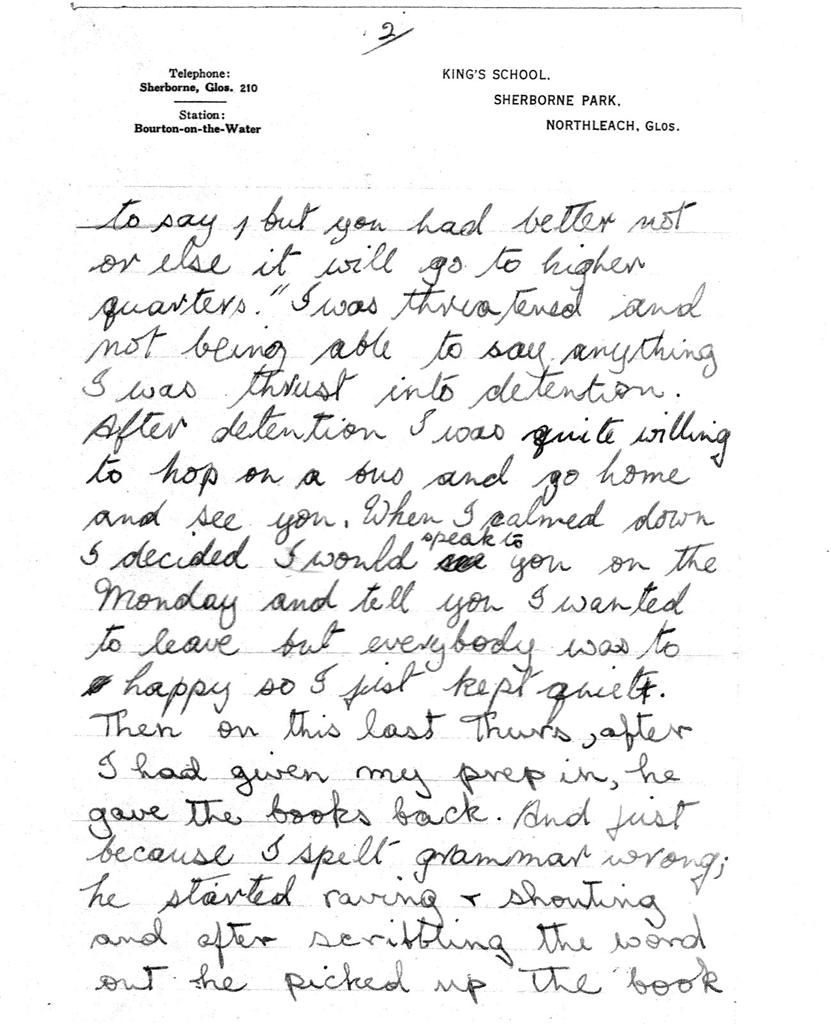 2
Telephone:
Sherborne, Glos. 210
Station:
Bourton-on-the-Water
KING'S SCHOOL,
SHERBORNE PARK,
NORTHLEACH, GLOS.
to say, but you had better not
or else it will go to higher
quarters." I was threatened and
not being able to say anything
I was thrust into detention.
After detention I was quite willing
to hop on a bus and go home
and see you. When I calmed down
I decided I would speak to you on the
Monday and tell you I wanted
to leave but everybody was to
happy so I just kept quiet.
Then on this last Thurs, after
I had given my prep in, he
gave the books back. And just
because I spelt grammar wrong;
he started raving + shouting
and after scribbling the word
out he picked up the book